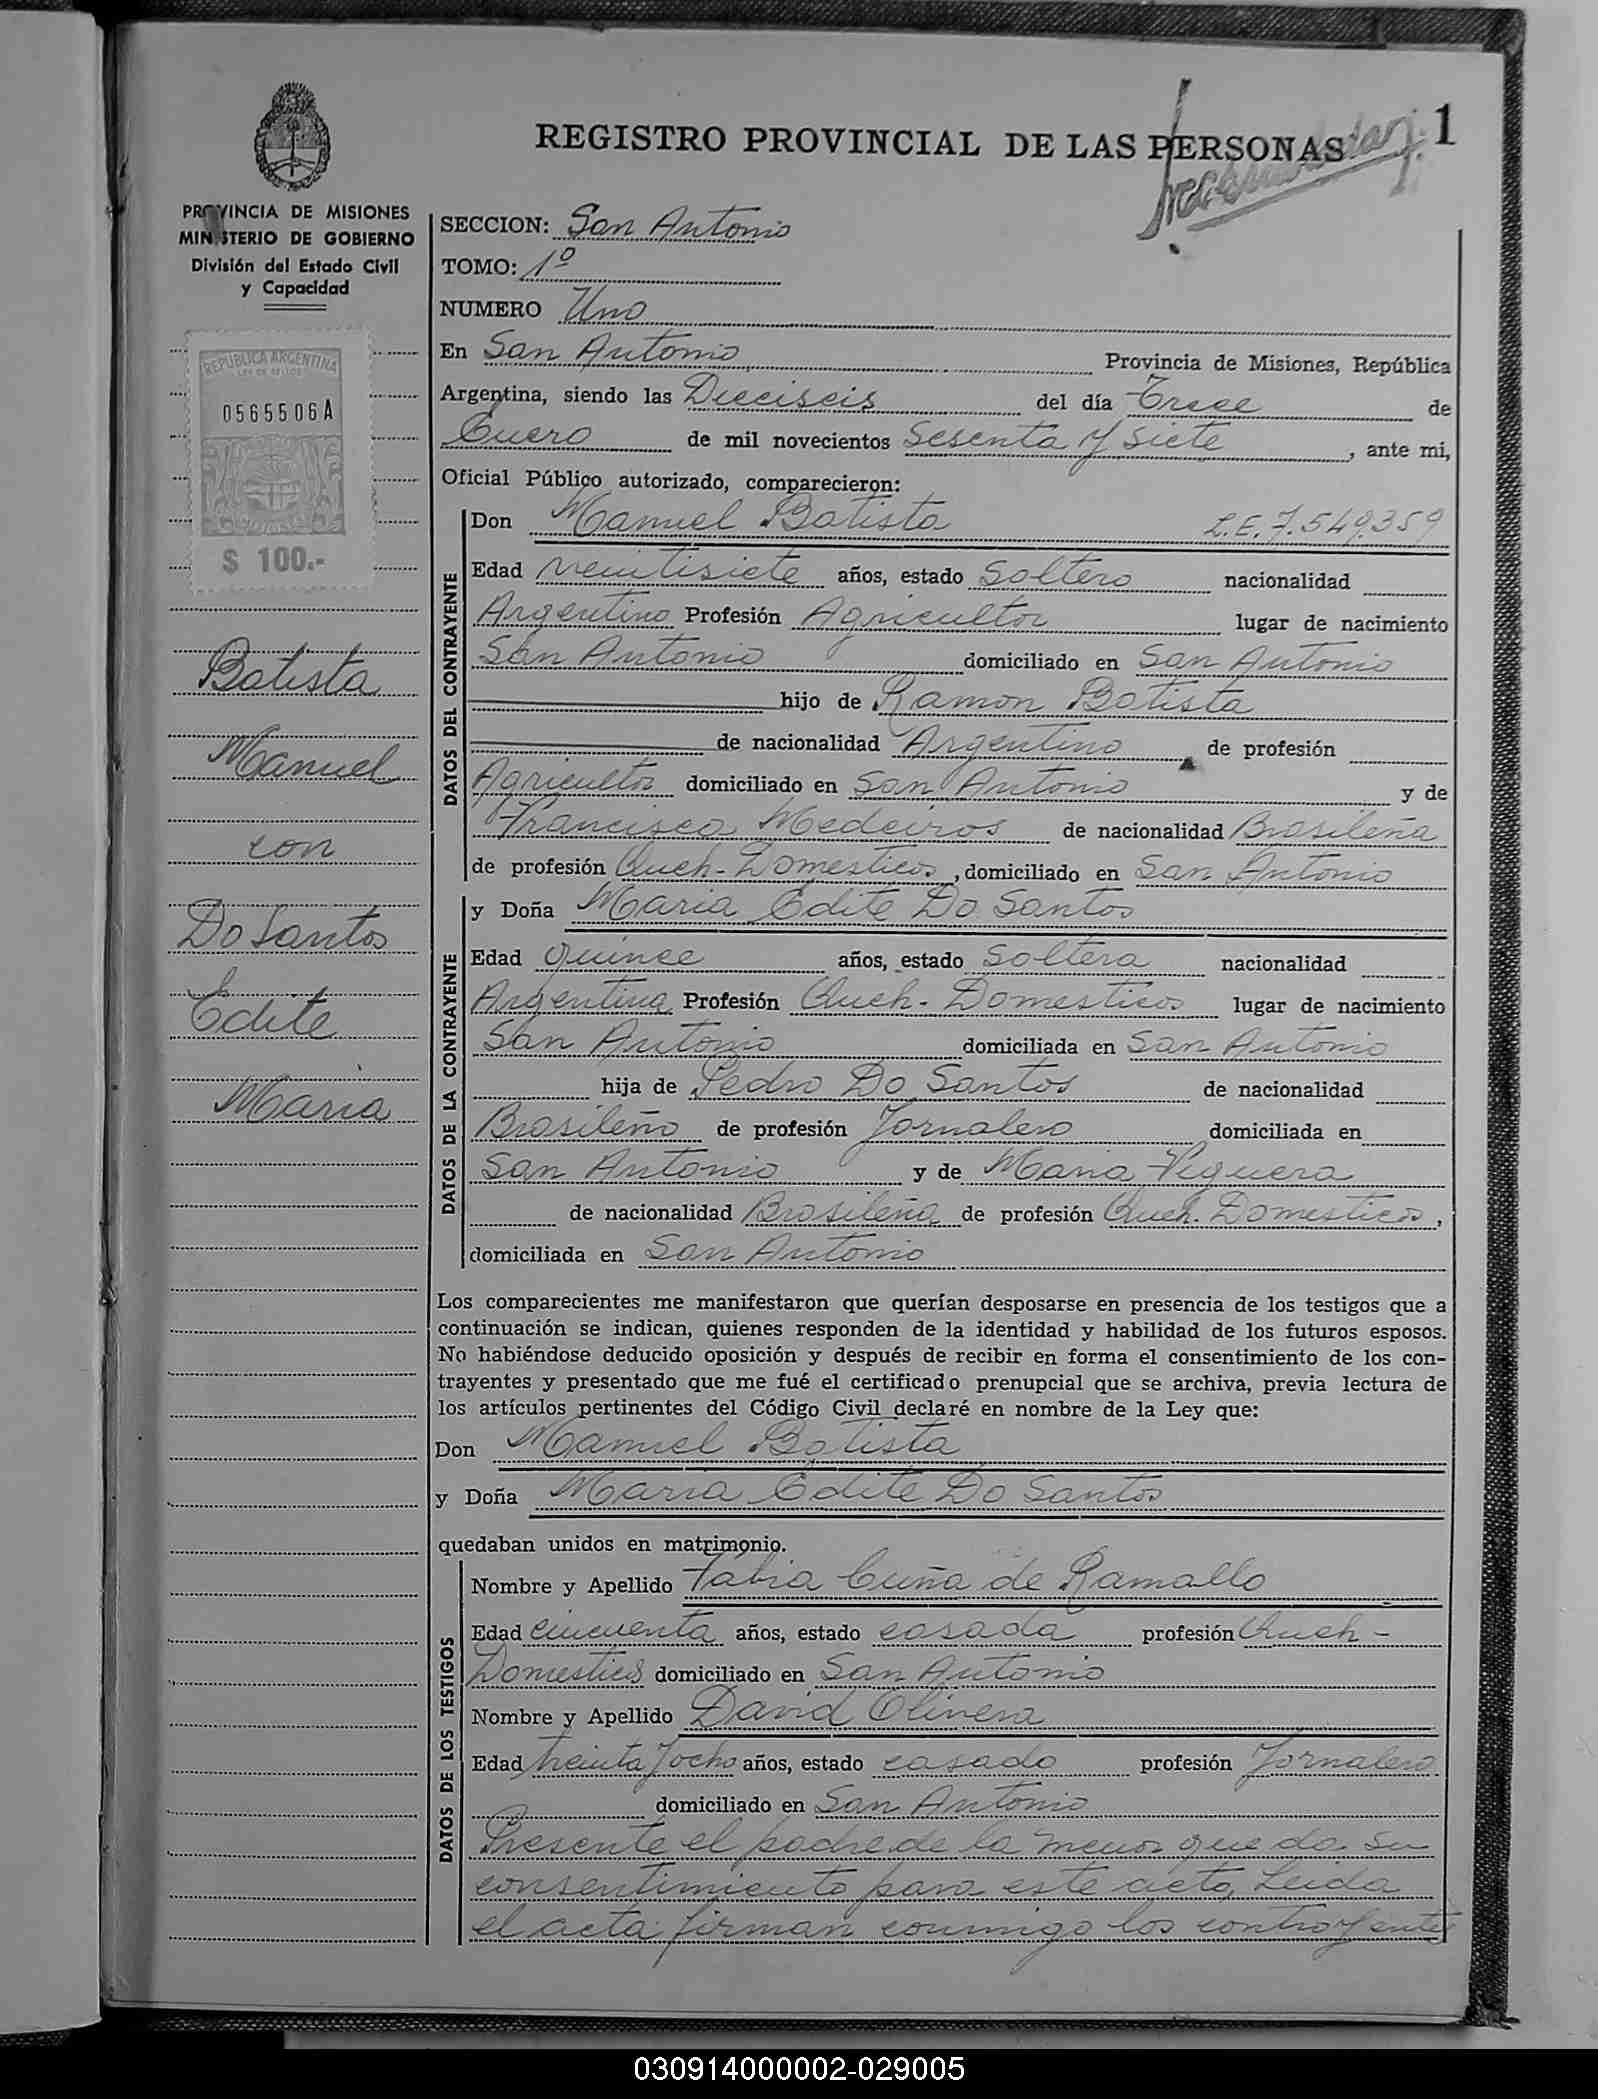 1
REGISTRO PROVINCIAL DE LAS PERSONAS
PROVINCIA DE MISIONES
MINISTERIO DE GOBIERNO
División del Estado Civil
y Capacidad
REPUBLICA ARGENTINA
LEY DE SELLOS
0565506A
$ 100.-
Batista
Manuel
con
Do Santos
Edite
Maria
SECCION: San Antonio
TOMO: 1º
NUMERO Uno
En San Antonio Provincia de Misiones, República
Argentina, siendo las Dieciseis del día Trece de
Enero de mil novecientos Sesenta y Siete, ante mi,
Oficial Público autorizado, comparecieron:
DATOS DEL CONTRAYENTE
Don Manuel Batista L.E. 7.549.359
Edad veintisiete años, estado Soltero nacionalidad
Argentino Profesión Agricultor lugar de nacimiento
San Antonio domiciliado en San Antonio
hijo de Ramon Batista
de nacionalidad Argentino de profesión
Agricultor domiciliado en San Antonio y de
Francisca Medeiros de nacionalidad Brasileña
de profesión Queh-Domesticos, domiciliado en San Antonio
DATOS DE LA CONTRAYENTE
y Doña Maria Edite Do Santos
Edad quince años, estado Soltera nacionalidad
Argentina Profesión Queh-Domesticos lugar de nacimiento
San Antonio domiciliada en San Antonio
hija de Pedro Do Santos de nacionalidad
Brasileño de profesión Jornalero domiciliada en
San Antonio y de Maria Viguera
de nacionalidad Brasileña de profesión Queh. Domesticos,
domiciliada en San Antonio
Los comparecientes me manifestaron que querían desposarse en presencia de los testigos que a
continuación se indican, quienes responden de la identidad y habilidad de los futuros esposos.
No habiéndose deducido oposición y después de recibir en forma el consentimiento de los con-
trayentes y presentado que me fué el certificado prenupcial que se archiva, previa lectura de
los artículos pertinentes del Código Civil declaré en nombre de la Ley que:
Don Manuel Batista
y Doña Maria Edite Do Santos
quedaban unidos en matrimonio.
DATOS DE LOS TESTIGOS
Nombre y Apellido Fabia Cuña de Ramallo
Edad cincuenta años, estado casada profesión Queh-
Domesticos domiciliado en San Antonio
Nombre y Apellido David Olivera
Edad treinta y ocho años, estado casado profesión Jornalero
domiciliado en San Antonio
Presente el padre de la menor que da su
consentimiento para este acto, Leida
el acta firman conmigo los contrayentes
030914000002-029005